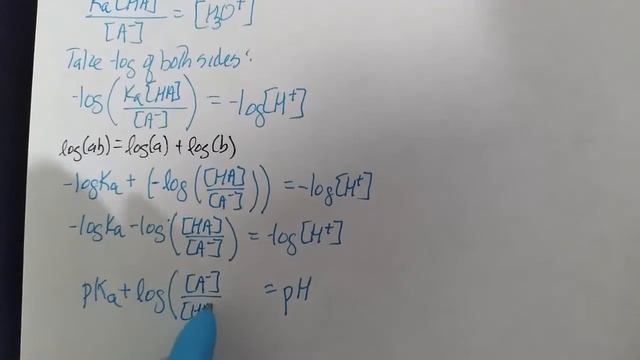 Ka[HA]/[A⁻] = [H₃O⁺]
Take -log of both sides:
-log(Ka[HA]/[A⁻]) = -log[H⁺]
log(ab)=log(a)+log(b)
-logKa + (-log([HA]/[A⁻])) = -log[H⁺]
-logKa - log([HA]/[A⁻]) = -log[H⁺]
pKa + log([A⁻]/[H = pH